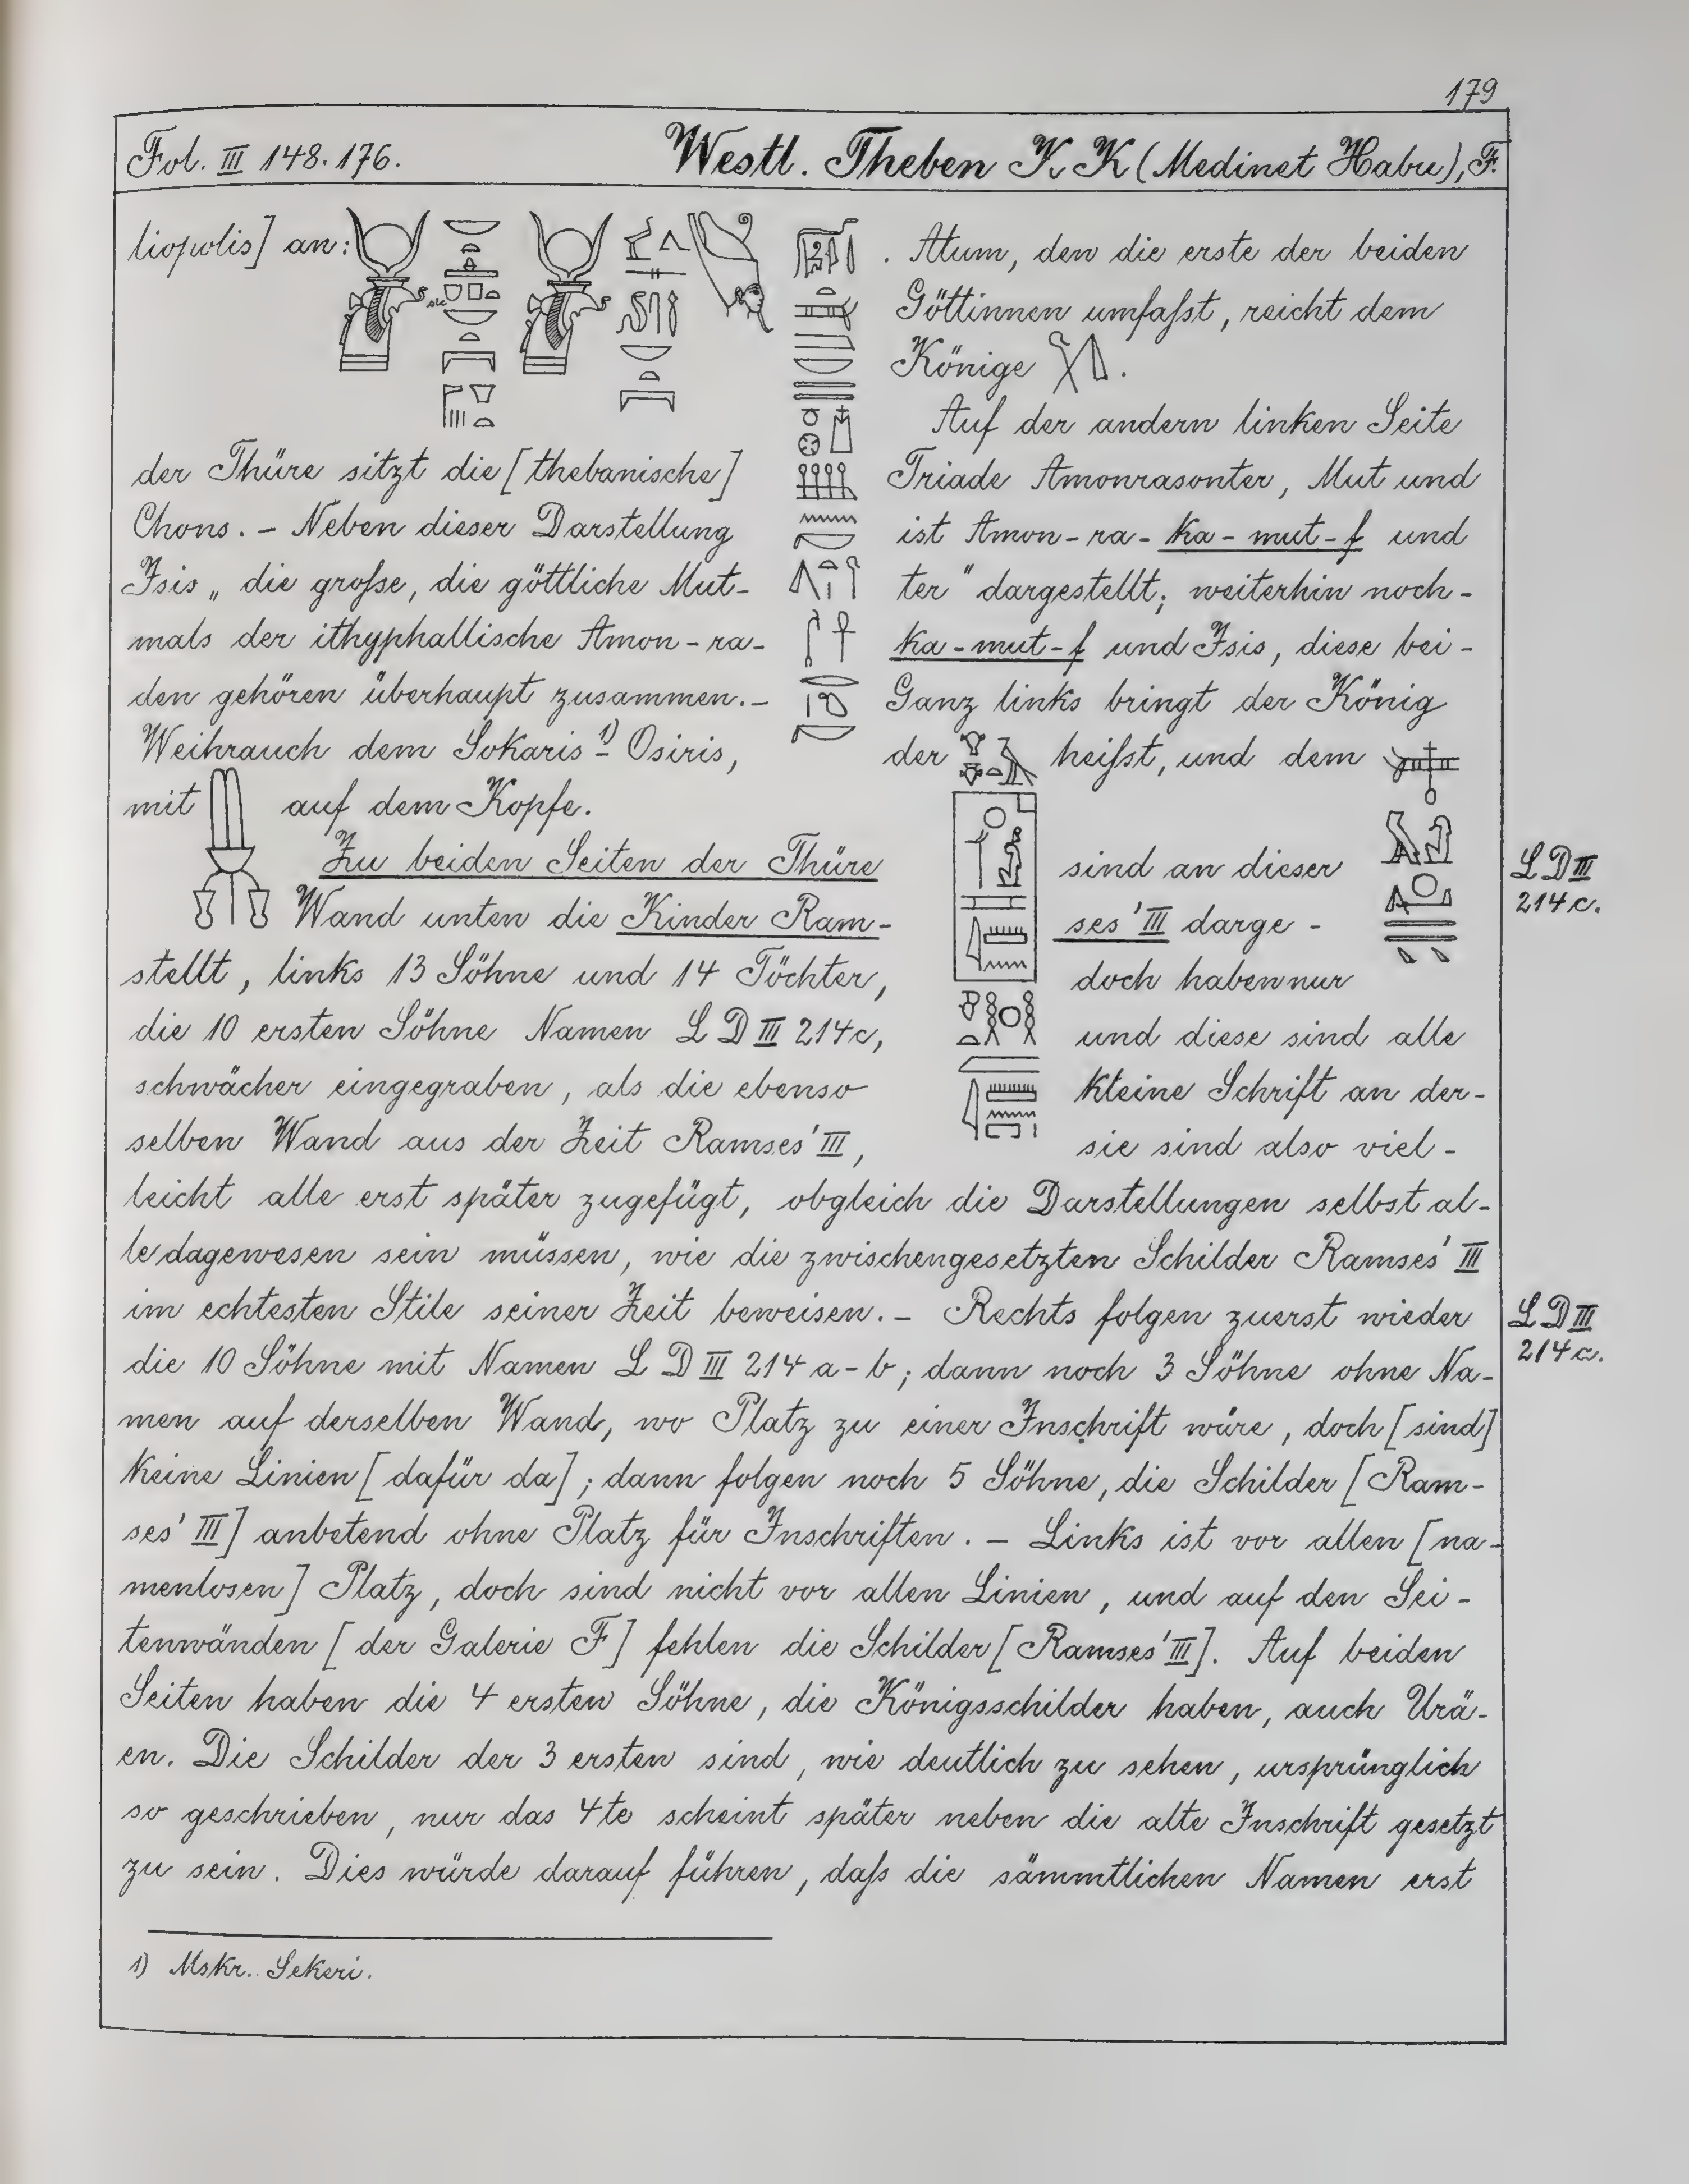 179
Fol. III 148. 176. Westl. Theben K K (Medinet Habu), F.
liopolis] an: . Atum, den die erste der beiden
Göttinnen umfaſst, reicht dem
Könige .
Auf der andern linken Seite
der Thüre sitzt die [thebanische] Triade Amonrasonter, Mut und
Chons. – Neben dieser Darstellung ist Amon-ra-ka-mut-f und
Isis „die groſse, die göttliche Mut- ter" dargestellt; weiterhin noch-
mals der ithyphallische Amon-ra- ka-mut-f und Isis, diese bei-
den gehören überhaupt zusammen. – Ganz links bringt der König
Weihrauch dem Sokaris 1) Osiris, der heiſst, und dem
mit auf dem Kopfe.
Zu beiden Seiten der Thüre sind an dieser
LD III
214 c.
Wand unten die Kinder Ram- ses' III darge-
stellt, links 13 Söhne und 14 Töchter, doch haben nur
die 10 ersten Söhne Namen LD III 214c, und diese sind alle
schwächer eingegraben, als die ebenso kleine Schrift an der-
selben Wand aus der Zeit Ramses' III, sie sind also viel-
leicht alle erst später zugefügt, obgleich die Darstellungen selbst al-
le dagewesen sein müssen, wie die zwischengesetzten Schilder Ramses' III
im echtesten Stile seiner Zeit beweisen. – Rechts folgen zuerst wieder
LD III
214 a.
die 10 Söhne mit Namen LD III 214 a-b; dann noch 3 Söhne ohne Na-
men auf derselben Wand, wo Platz zu einer Inschrift wäre, doch [sind]
keine Linien [dafür da]; dann folgen noch 5 Söhne, die Schilder [Ram-
ses' III] anbetend ohne Platz für Inschriften. – Links ist vor allen [na-
menlosen] Platz, doch sind nicht vor allen Linien, und auf den Sei-
tenwänden [der Galerie F] fehlen die Schilder [Ramses' III]. Auf beiden
Seiten haben die 4 ersten Söhne, die Königsschilder haben, auch Urä-
en. Die Schilder der 3 ersten sind, wie deutlich zu sehen, ursprünglich
so geschrieben, nur das 4te scheint später neben die alte Inschrift gesetzt
zu sein. Dies würde darauf führen, daſs die sämmtlichen Namen erst
1) Mskr. Sekeri.